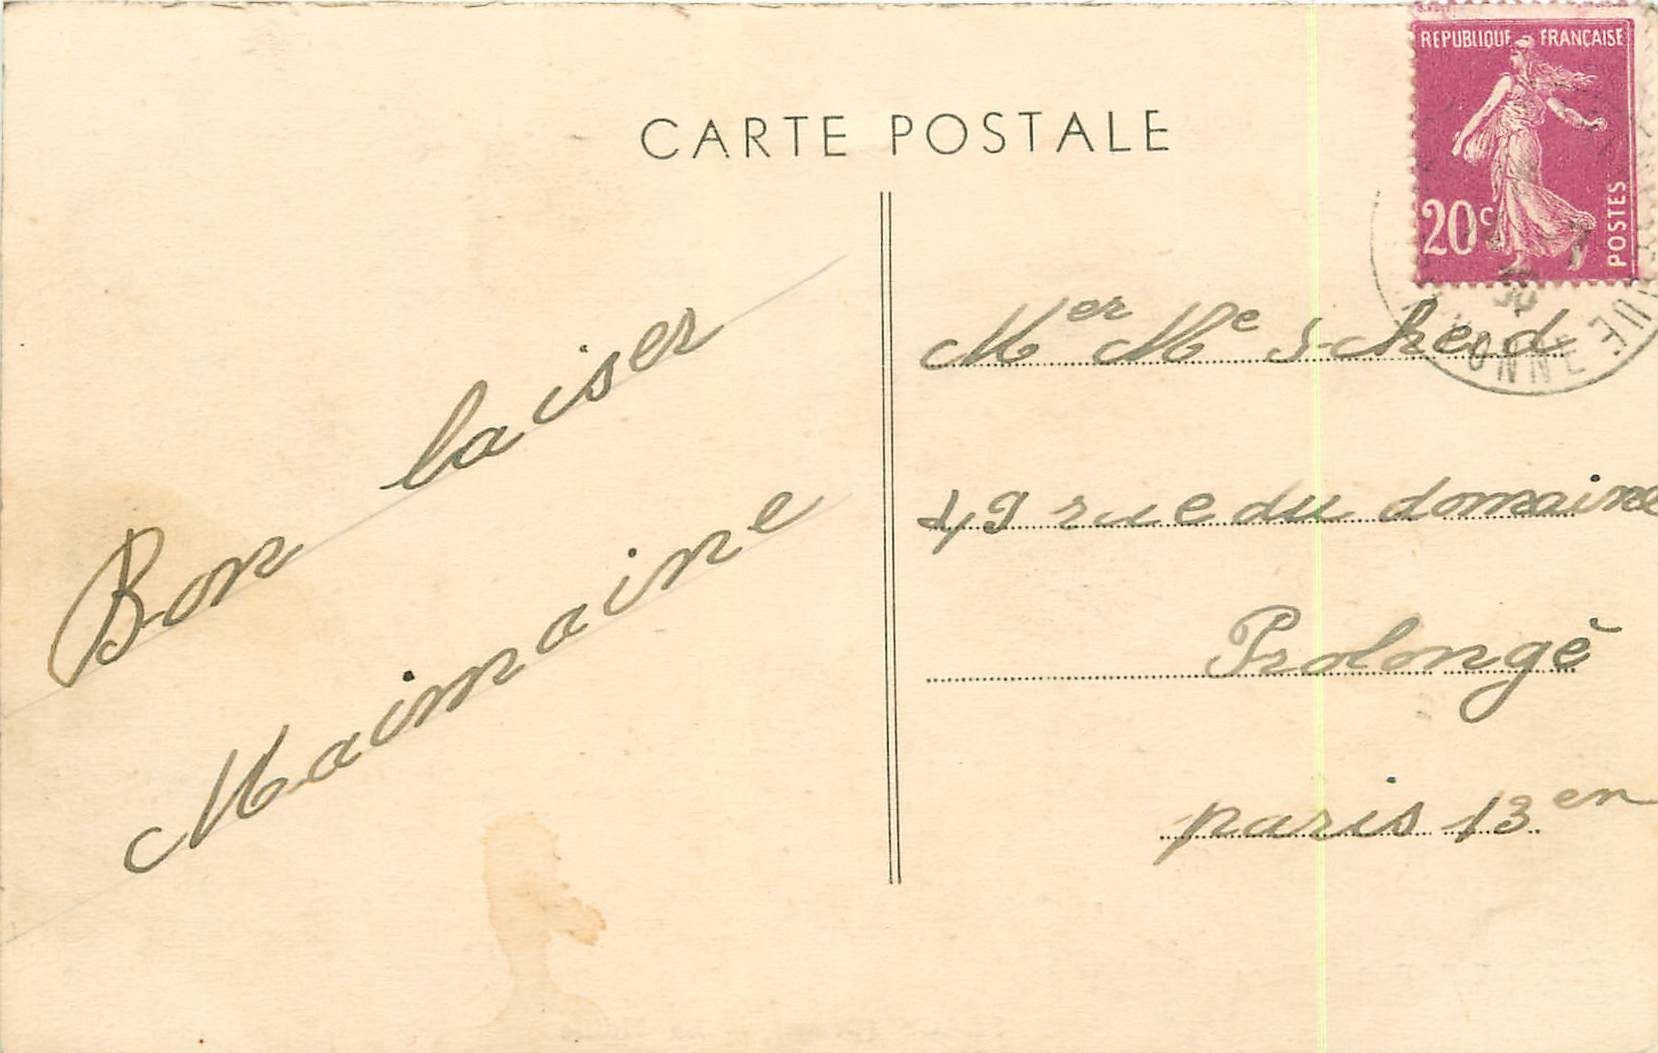 CARTE POSTALE
REPUBLIQUE FRANÇAISE
20c
POSTES
Bon baiser
Maimaine
Mer Me Scheid
49 rue du domaine
Prolongé
paris 13en